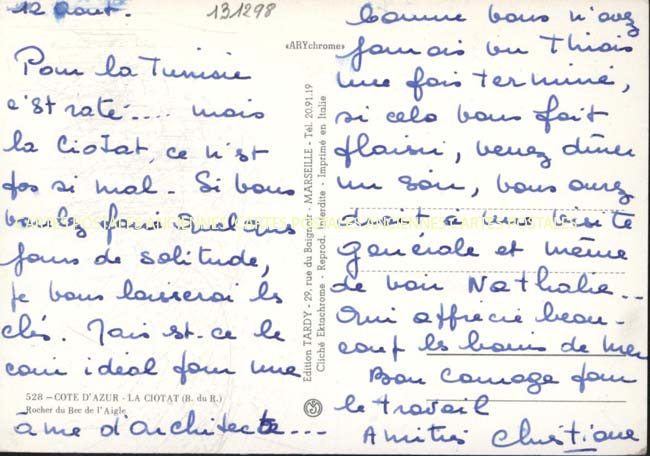 12 Aout.
131298
Pour la Tunisie
c'est raté.... mais
la Ciotat, ce n'est
pas si mal - Si vous
voulez passer quelques
jours de solitude,
je vous laisserai les
clés. Mais est-ce le
coin idéal pour une
528 — COTE D'AZUR - LA CIOTAT (B. du R.)
Rocher du Bec de l'Aigle
âme d'architecte...
«ARYchrome»
Edition TARDY - 29, rue du Baignoir - MARSEILLE - Tél. 20.91.19
Cliché Ektachrome - Reprod. Interdite - Imprimé en Italie
Comme vous n'avez
jamais vu Thiais
une fois terminé,
si cela vous fait
plaisir, venez dîner
un soir, vous aurez
droit à une visite
générale et même
de voir Nathalie...
Qui apprécie beau-
coup les bains de mer
Bon courage pour
le travail
Amitiés Christiane
CARTES POSTALES ANCIENNES CARTES POSTALES ANCIENNES CARTES POSTALES